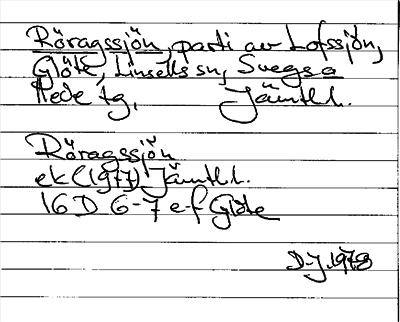 Röragssjön, parti av Lofssjön,
Glöte, Linsells sn, Svegs
Hede tg, Jämtl.l.
Röragssjön
ek (1977) Jämtl.l.
16D 6-7 e-f Glöte
D.J. 1978